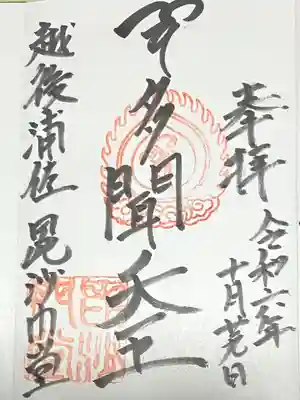 奉拝
令和六年
十月廿八日
多聞天王
越後浦佐毘沙門堂